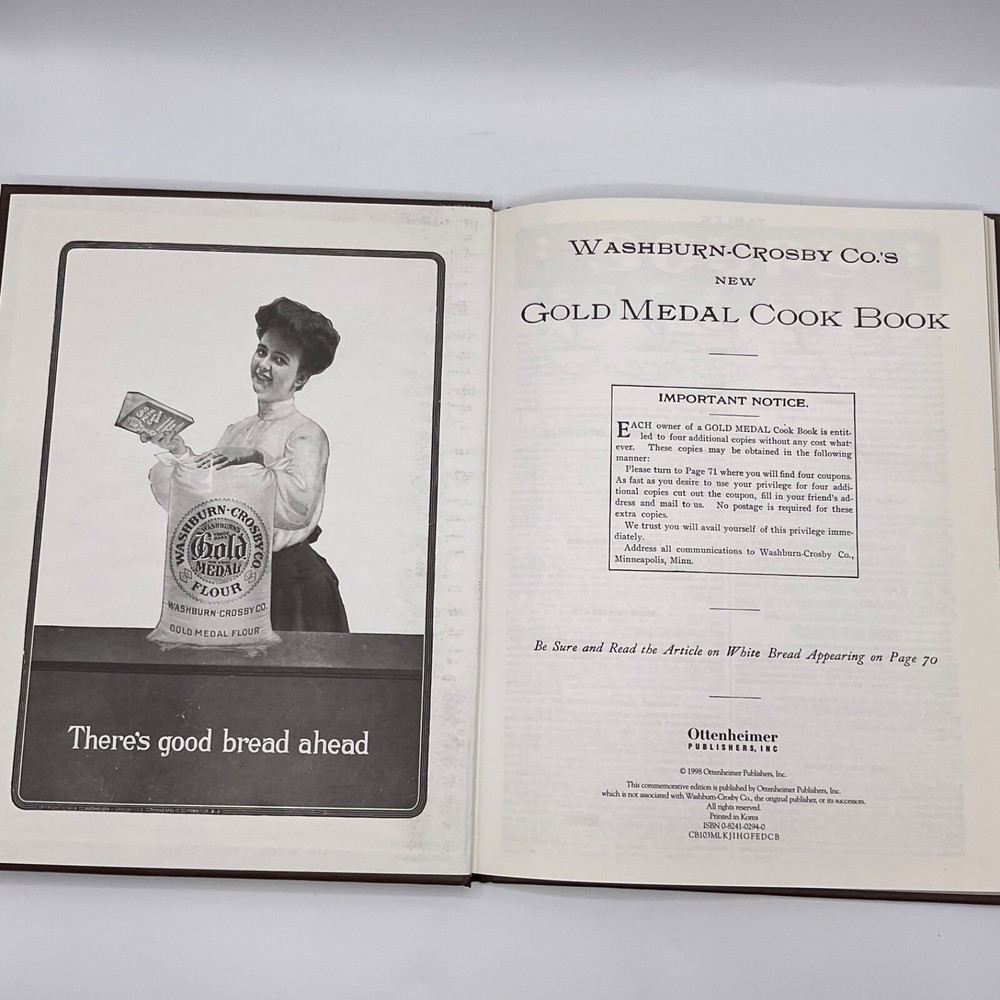 GOLD
MEDAL
WASHBURN-CROSBY CO.
WASHBURN'S
Gold
MEDAL
FLOUR
WASHBURN-CROSBY CO.
GOLD MEDAL FLOUR
There's good bread ahead
WASHBURN-CROSBY CO.'S
NEW
GOLD MEDAL COOK BOOK
IMPORTANT NOTICE.
EACH owner of a GOLD MEDAL Cook Book is entit-
led to four additional copies without any cost what-
ever. These copies may be obtained in the following
manner:
Please turn to Page 71 where you will find four coupons.
As fast as you desire to use your privilege for four addi-
tional copies cut out the coupon, fill in your friend's ad-
dress and mail to us. No postage is required for these
extra copies.
We trust you will avail yourself of this privilege imme-
diately.
Address all communications to Washburn-Crosby Co.,
Minneapolis, Minn.
Be Sure and Read the Article on White Bread Appearing on Page 70
Ottenheimer
PUBLISHERS, INC
© 1998 Ottenheimer Publishers, Inc.
This commemorative edition is published by Ottenheimer Publishers, Inc.
which is not associated with Washburn-Crosby Co., the original publisher, or its successors.
All rights reserved.
Printed in Korea
ISBN 0-8241-0294-0
CB103MLKJIHGFEDCB